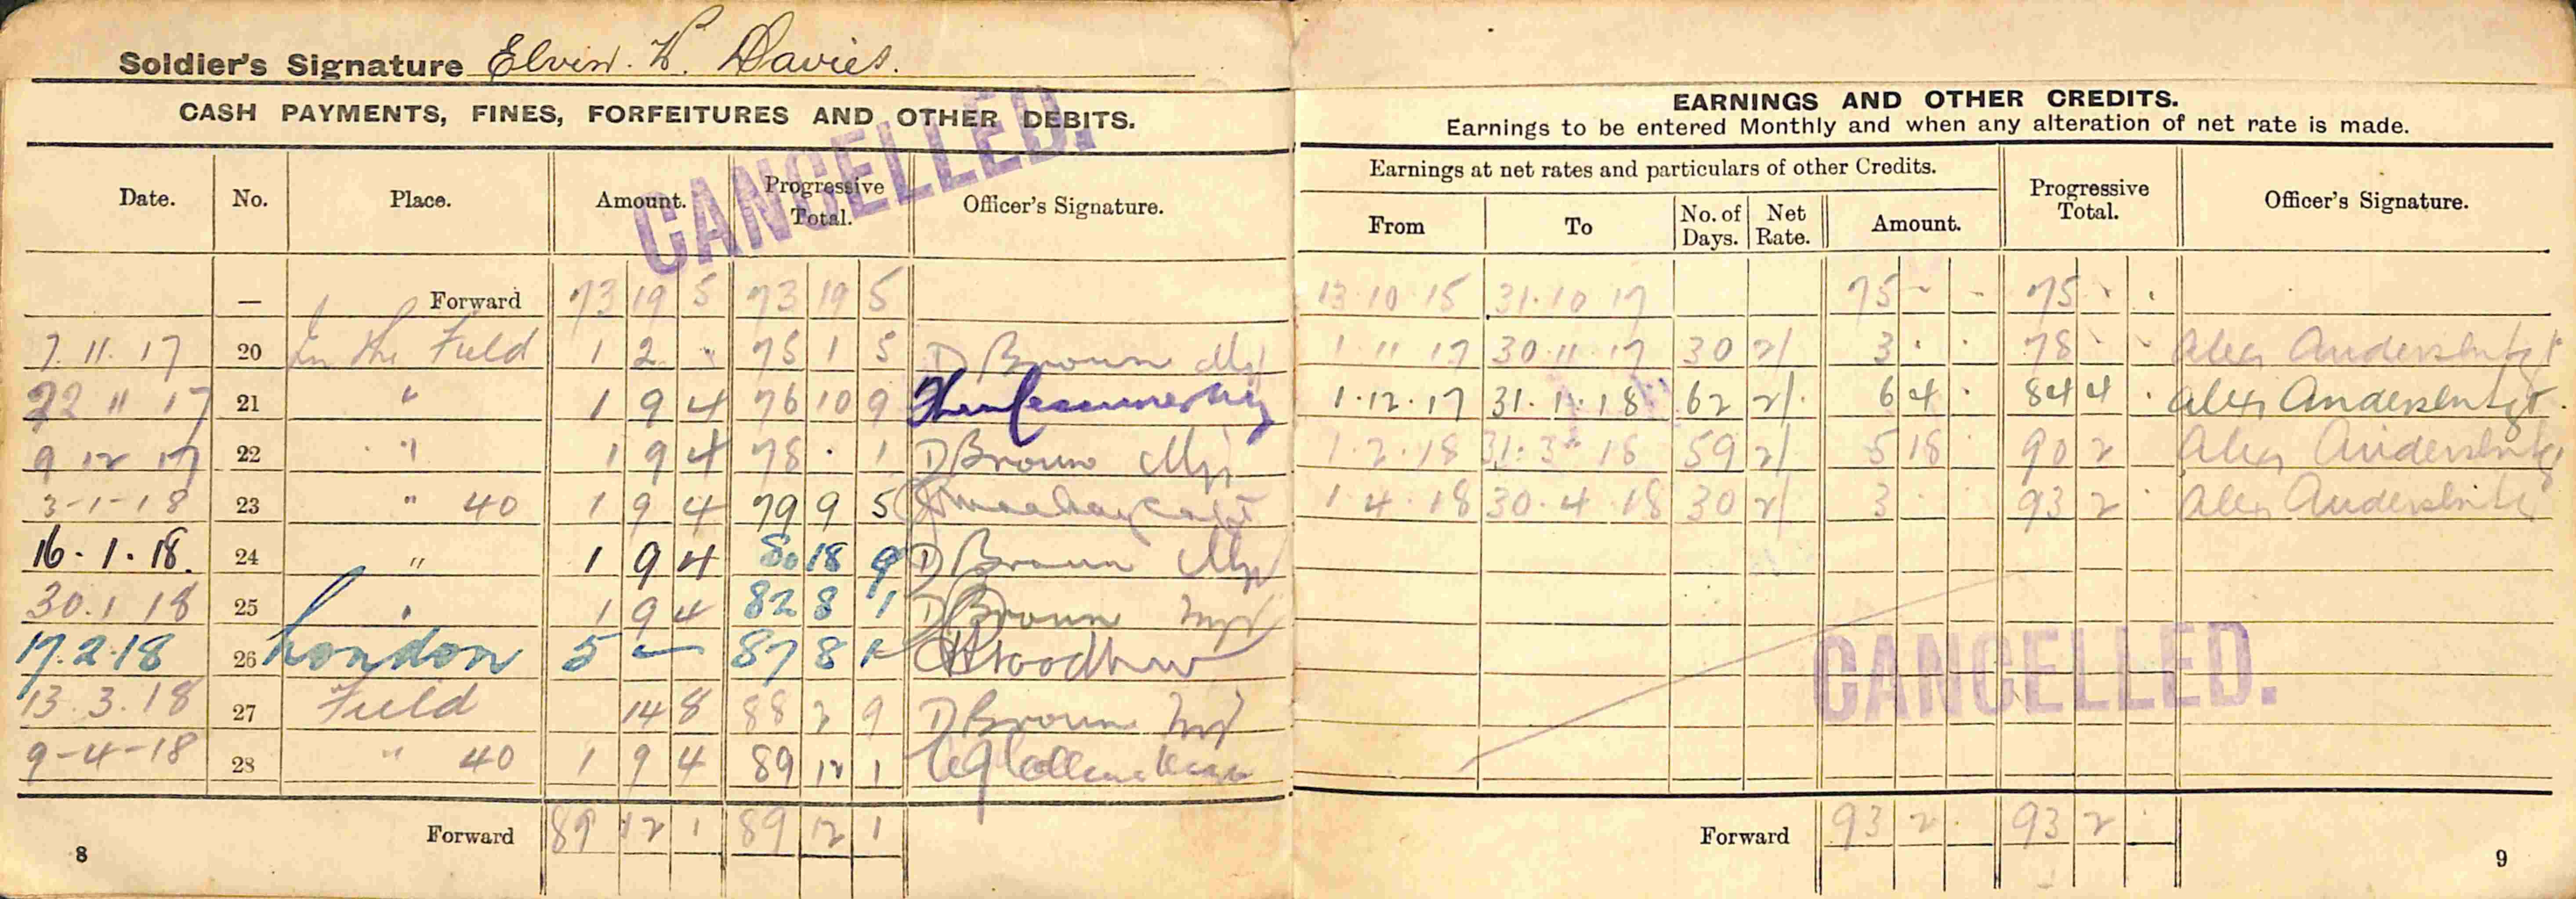 Soldier's Signature Elvin. W. Davies.
CASH PAYMENTS, FINES, FORFEITURES AND OTHER DEBITS.
CANCELLED.
Date. No. Place. Amount. Progressive Total. Officer's Signature.
— Forward 73 19 5 73 19 5
7. 11. 17 20 In the Field 1 2 . 75 1 5 D Brown Mjr
22 11 17 21 " 1 9 4 76 10 9
9 12 17 22 " 1 9 4 78 . 1 D Brown Mjr
3-1-18 23 " 40 1 9 4 79 9 5
16. 1. 18. 24 " 1 9 4 80 18 9 D Brown Mjr
30. 1 18 25 " 1 9 4 82 8 1 D Brown Mjr
17. 2. 18 26 London 5 — 87 8 1
13. 3. 18 27 Field 14 8 88 2 9 D Brown Mjr
9-4-18 28 " 40 1 9 4 89 12 1
Forward 89 12 1 89 12 1
8
EARNINGS AND OTHER CREDITS.
Earnings to be entered Monthly and when any alteration of net rate is made.
Earnings at net rates and particulars of other Credits. Progressive Total. Officer's Signature.
From To No. of Days. Net Rate. Amount.
13. 10. 15 31. 10 17 75 - - 75 . .
1 11 17 30 11 17 30 2/ 3 . . 78 - - Alex Anderson
1. 12. 17 31. 1. 18 62 2/. 6 4 . 84 4 . Alex Anderson
1. 2. 18 31. 3 18 59 2/ 5 18 . 90 2 . Alex Anderson
1 4 18 30. 4 18 30 2/ 3 . . 93 2 . Alex Anderson
CANCELLED.
Forward 93 2 . 93 2 .
9